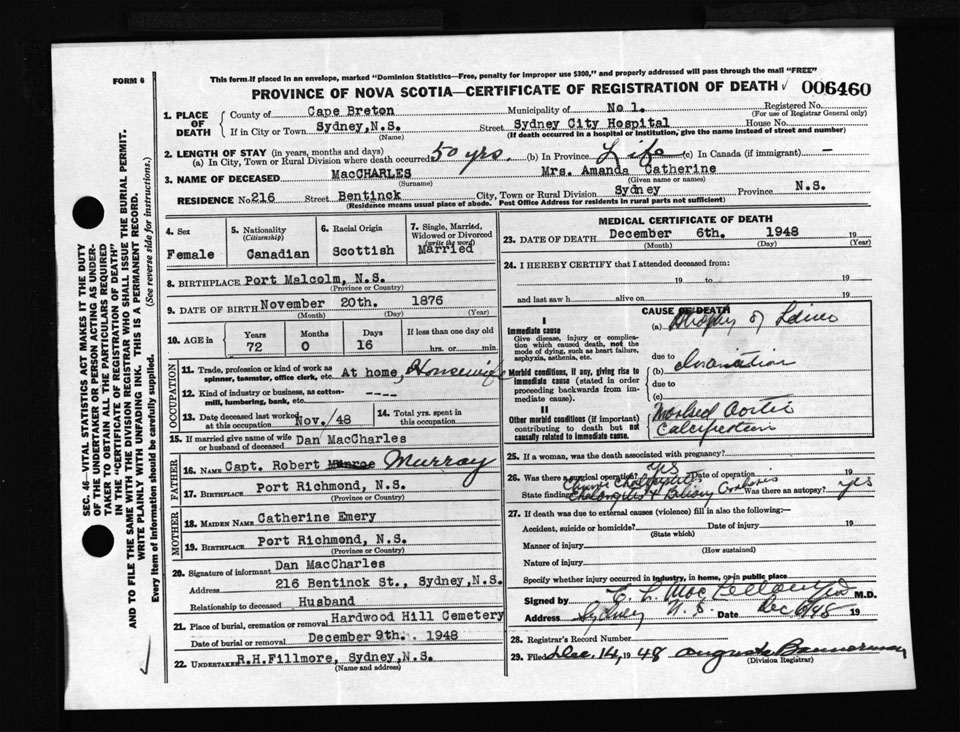 FORM 6
This form if placed in an envelope, marked "Dominion Statistics—Free, penalty for improper use $300," and properly addressed will pass through the mail "FREE"
PROVINCE OF NOVA SCOTIA—CERTIFICATE OF REGISTRATION OF DEATH 006460
1. PLACE OF DEATH County of Cape Breton Municipality of No 1. Registered No. (For use of Registrar General only)
If in City or Town Sydney, N.S. (Name) Street Sydney City Hospital House No.
(If death occurred in a hospital or institution, give the name instead of street and number)
2. LENGTH OF STAY (in years, months and days)
(a) In City, Town or Rural Division where death occurred 50 yrs. (b) In Province Life (c) In Canada (if immigrant) —
3. NAME OF DECEASED MacCHARLES (Surname) Mrs. Amanda Catherine (Given name or names)
RESIDENCE No 216 Street Bentinck City, Town or Rural Division Sydney Province N.S.
(Residence means usual place of abode. Post Office Address for residents in rural parts not sufficient)
4. Sex Female
5. Nationality (Citizenship) Canadian
6. Racial Origin Scottish
7. Single, Married, Widowed or Divorced (write the word) Married
8. BIRTHPLACE Port Malcolm, N.S. (Province or Country)
9. DATE OF BIRTH November 20th. 1876 (Month) (Day) (Year)
10. AGE in Years 72 Months 0 Days 16 If less than one day old hrs. or min.
OCCUPATION
11. Trade, profession or kind of work as spinner, teamster, office clerk, etc. At home, Housewife
12. Kind of industry or business, as cotton-mill, lumbering, bank, etc. ----
13. Date deceased last worked at this occupation Nov./48 14. Total yrs. spent in this occupation
15. If married give name of wife or husband of deceased Dan MacCharles
FATHER
16. NAME Capt. Robert Munroe Murray
17. BIRTHPLACE Port Richmond, N.S. (Province or Country)
MOTHER
18. MAIDEN NAME Catherine Emery
19. BIRTHPLACE Port Richmond, N.S. (Province or Country)
20. Signature of informant Dan MacCharles
Address 216 Bentinck St., Sydney, N.S.
Relationship to deceased Husband
21. Place of burial, cremation or removal Hardwood Hill Cemetery
Date of burial or removal December 9th. 1948
22. UNDERTAKER R.H.Fillmore, Sydney, N.S. (Name and address)
MEDICAL CERTIFICATE OF DEATH
23. DATE OF DEATH December 6th. 1948 (Month) (Day) (Year)
24. I HEREBY CERTIFY that I attended deceased from:
19 to 19
and last saw h alive on 19
CAUSE OF DEATH
I
Immediate cause
Give disease, injury or complication which caused death, not the mode of dying, such as heart failure, asphyxia, asthenia, etc.
(a) Atrophy of
due to
Morbid conditions, if any, giving rise to immediate cause (stated in order proceeding backwards from immediate cause).
(b) Inanition
due to
(c)
II
Other morbid conditions (if important) contributing to death but not causally related to immediate cause.
Marked Aortic
Calcification
25. If a woman, was the death associated with pregnancy?
26. Was there a surgical operation? yes Date of operation 19
State findings Chronic Cholecystitis Biliary Was there an autopsy? yes
27. If death was due to external causes (violence) fill in also the following:—
Accident, suicide or homicide? (State which) Date of injury 19
Manner of injury (How sustained)
Nature of injury
Specify whether injury occurred in industry, in home, or in public place
Signed by M.D.
Address Sydney N.S. Date Dec 19
28. Registrar's Record Number
29. Filed Dec. 14, 1948 Bannerman (Division Registrar)
SEC. 46—VITAL STATISTICS ACT MAKES IT THE DUTY
OF THE UNDERTAKER OR PERSON ACTING AS UNDER-
TAKER TO OBTAIN ALL THE PARTICULARS REQUIRED
IN THE "CERTIFICATE OF REGISTRATION OF DEATH"
AND TO FILE THE SAME WITH THE DIVISION REGISTRAR WHO SHALL ISSUE THE BURIAL PERMIT.
WRITE PLAINLY WITH UNFADING INK. THIS IS A PERMANENT RECORD.
Every item of Information should be carefully supplied. (See reverse side for instructions.)